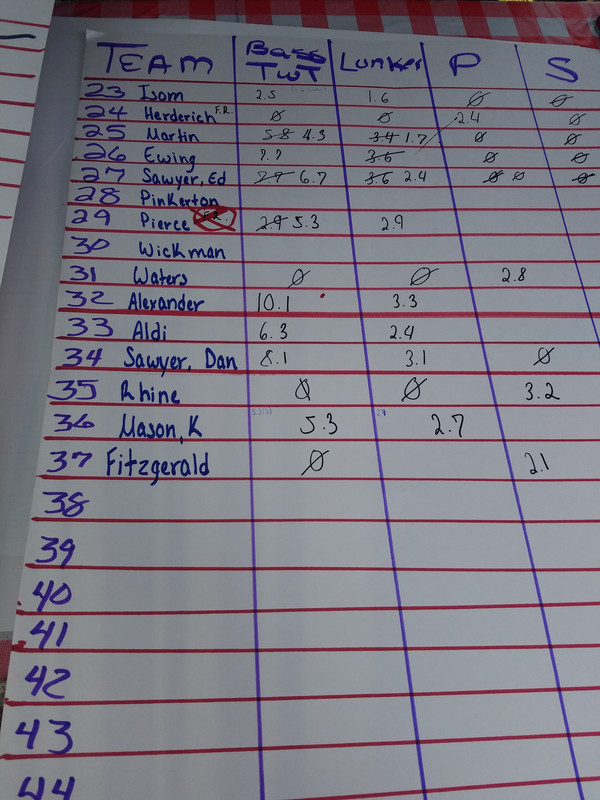 TEAM Bass TWT Lunker P S
23 Isom 2.5 1.6 Ø Ø
24 Herderich F.R. Ø Ø 2.4 Ø
25 Martin 5.8 4.3 3.4 1.7 Ø Ø
26 Ewing 3.6 Ø Ø
27 Sawyer, Ed 6.7 3.6 2.4 Ø Ø Ø
28 Pinkerton
29 Pierce F.R. 2.9 5.3 2.9
30 Wickman
31 Waters Ø Ø 2.8
32 Alexander 10.1 3.3
33 Aldi 6.3 2.4
34 Sawyer, Dan 8.1 3.1 Ø
35 Rhine Ø Ø 3.2
36 Mason, K 5.3 2.7
37 Fitzgerald Ø 2.1
38
39
40
41
42
43
44